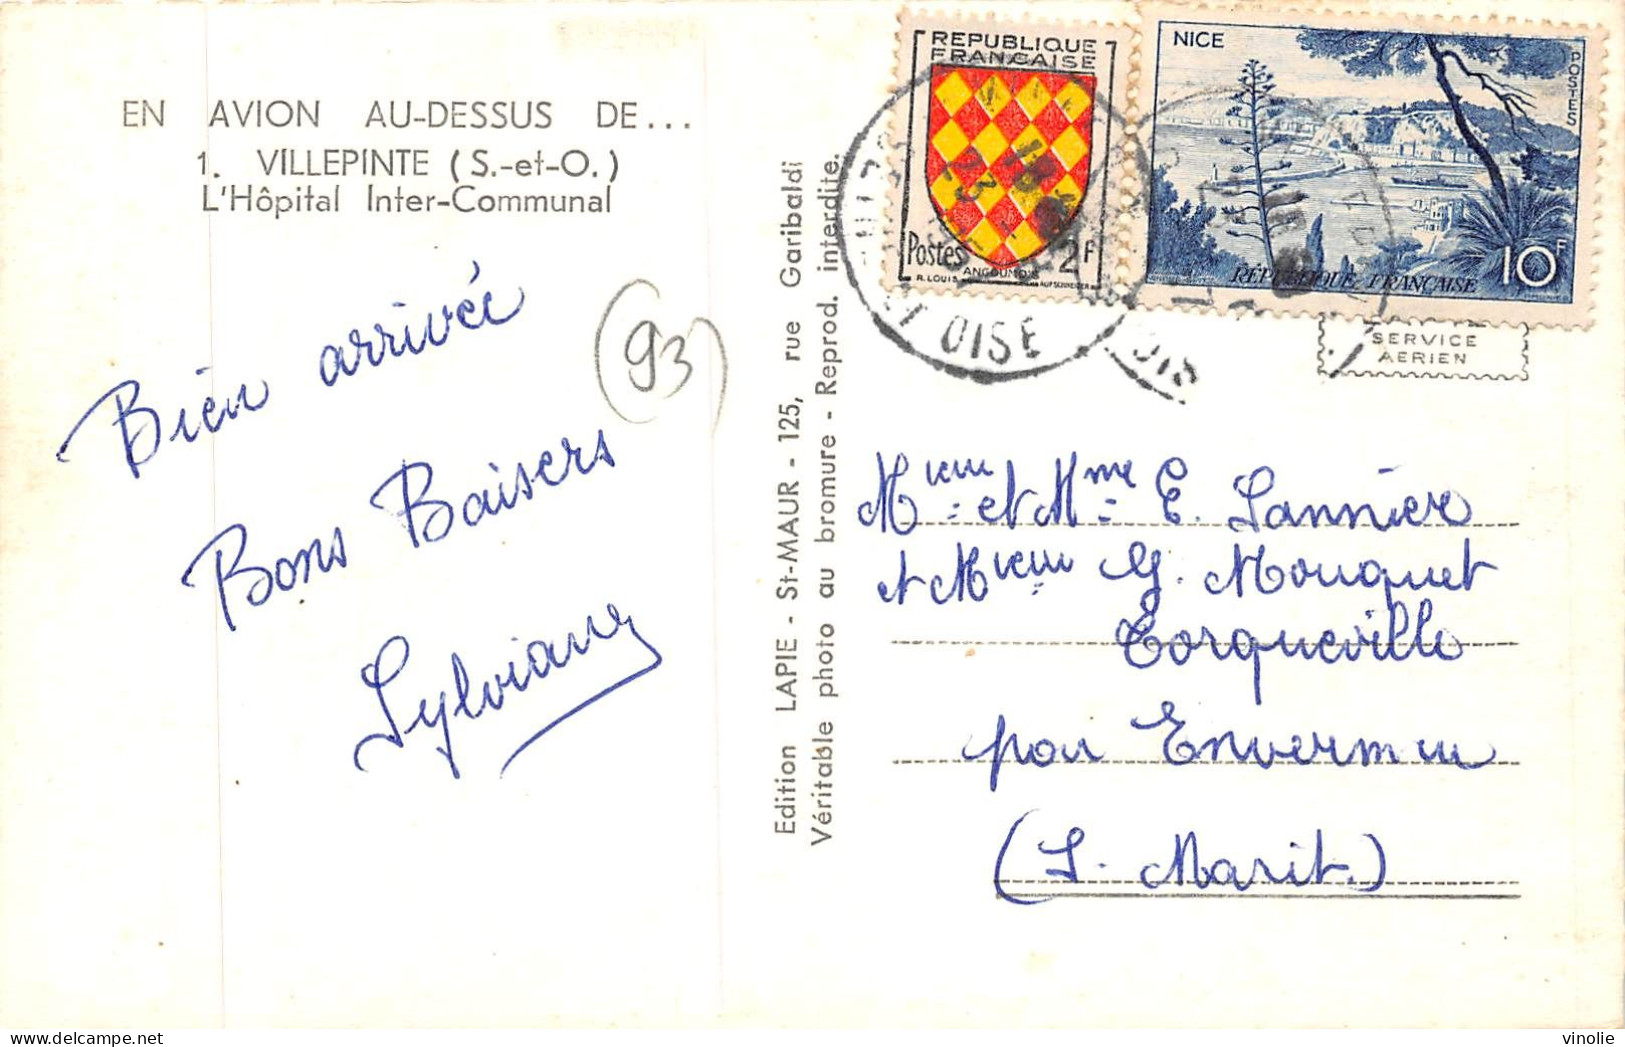 EN AVION AU-DESSUS DE...
1. VILLEPINTE (S.-et-O.)
L'Hôpital Inter-Communal
Bien arrivée
Bons Baisers
Sylviane
(93)
Edition LAPIE - St-MAUR - 125, rue Garibaldi
Véritable photo au bromure - Reprod. interdite.
REPUBLIQUE
FRANCAISE
Postes 2F
ANGOUMOIS
R. LOUIS
NICE
POSTES
10F
RÉPUBLIQUE FRANÇAISE
ET OISE
SERVICE
AERIEN
Mieur et Mme E. Lannier
et Mieur G. Mouquet
Torqueville
par Envermeu
(S. Marit.)
vinolie